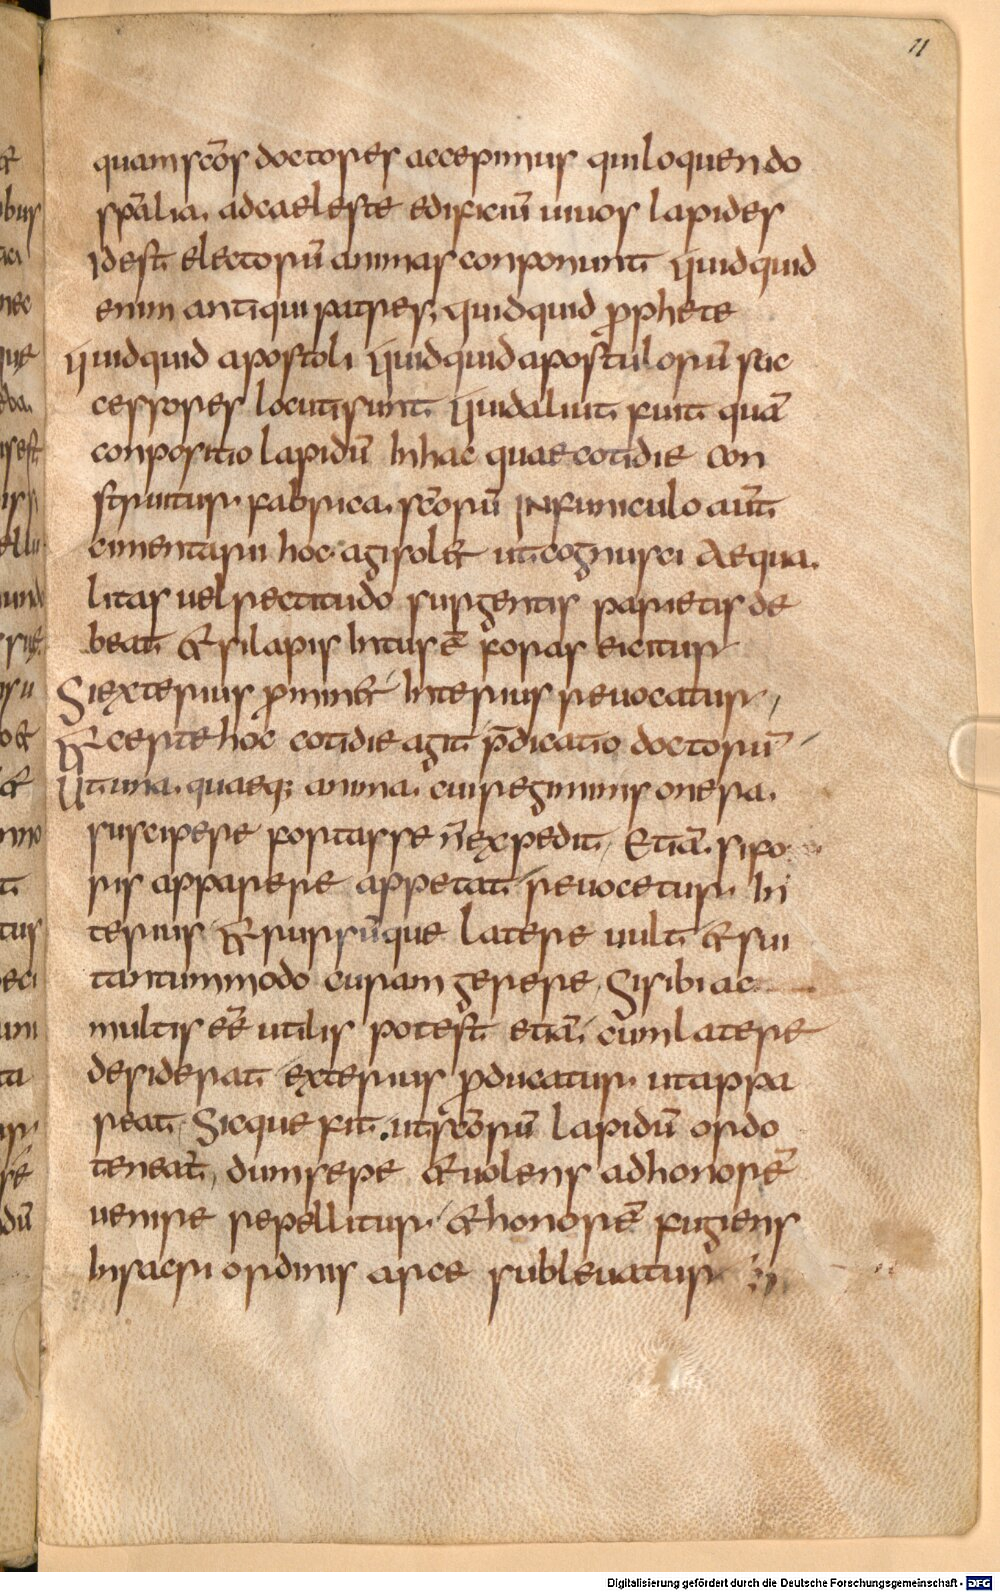 11
quam scōs doctores accepimus qui loquendo
sp̄alia. ad caeleste edificiū uiuos lapides
Idest electorū animas conponunt Quidquid
enim antiqui patres, quidquid p̄phete
Quidquid apostoli Quidquid apostulorū suc
cessores locuti sunt. Quid aliut fuit quā
conpositio lapidū In hac quae cotidie con
struitur fabrica. scōrū IN funiculo aūt
cimentarii hoc agi sol& ut cognusci Aequa
litas uel rectitudo surgentis parietis de
beat & si lapis Intus ē foras eicitur
Si exterius p̄min& Interius reuocatur,
& certe hoc cotidie agit p̄dicatio doctorū
Ut una. quaeq; anima. cui regiminis onera.
suscipere fortasse n̄ expedit, Etiā. si fo
ris apparere appetat reuocetur. In
terius & rursūque latere uult & sui
tantummodo curam gerere, Si sibi ac
multis eē utilis potest etiā. cum latere
desiderat exterius p̄ducatur. ut appa
reat, Sicque fit. ut scōrū lapidū ordo
teneat, dum sepe & uolens ad honorē
uenire repellitur. & honorē fugiens
In sacri ordinis arce subleuatur
Digitalisierung gefördert durch die Deutsche Forschungsgemeinschaft - DFG